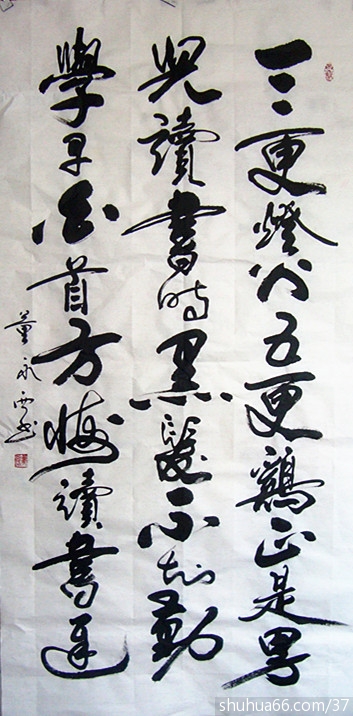 三更燈火五更鷄正是男
兒讀書時黑髮不知勤
學早白首方悔讀書遲
董永雲书
shuhua66.com/37